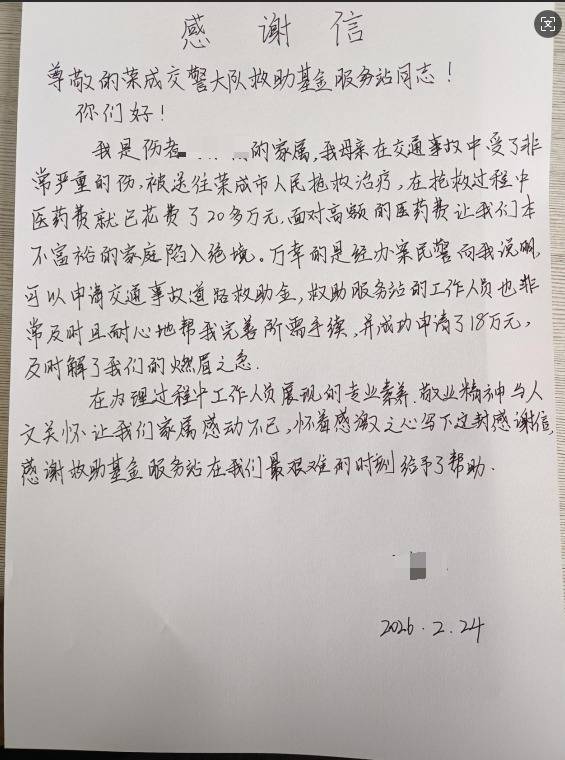 感谢信
尊敬的荣成交警大队救助基金服务站同志！
你们好！
我是伤者的家属，我母亲在交通事故中受了非
常严重的伤，被送往荣成市人民抢救治疗，在抢救过程中
医药费就已花费了20多万元，面对高额的医药费让我们本
不富裕的家庭陷入绝境。万幸的是经办案民警向我说明，
可以申请交通事故道路救助金，救助服务站的工作人员也非
常及时且耐心地帮我完善所需手续，并成功申请了18万元，
及时解了我们的燃眉之急.
在办理过程中工作人员展现的专业素养.敬业精神与人
文关怀让我们家属感动不已，怀着感激之心写下这封感谢信，
感谢救助基金服务站在我们最艰难的时刻给予了帮助.
2026.2.24